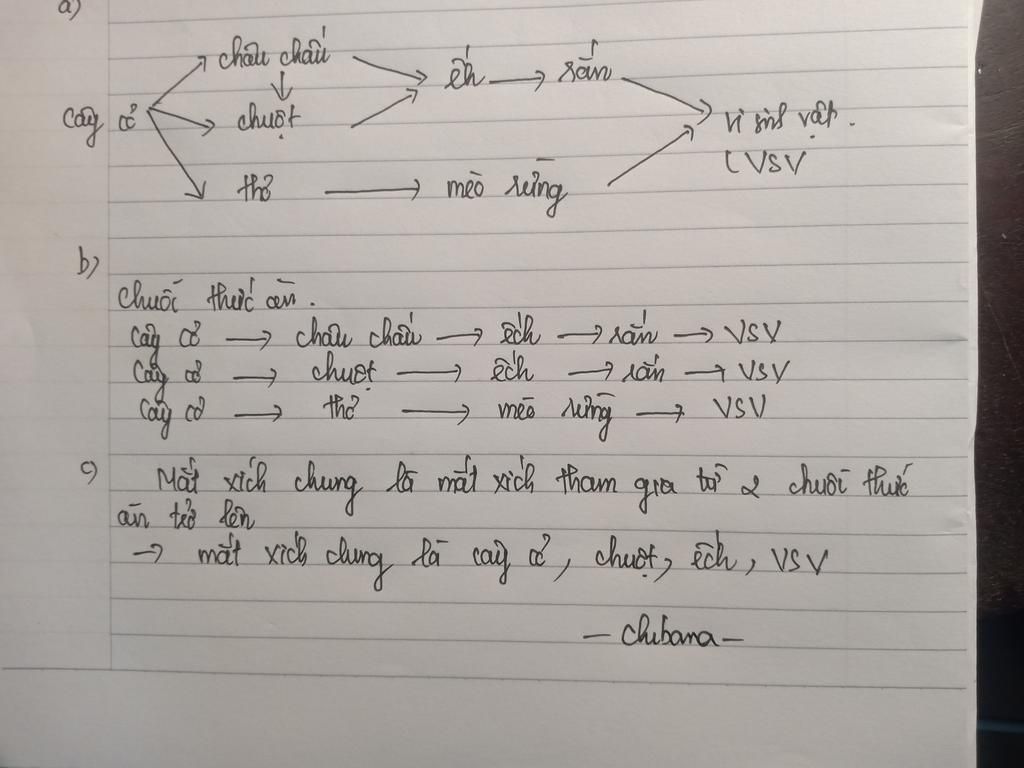 a)
châu chấu → ếch → rắn
cây cỏ → chuột → vi sinh vật.
(VSV
thỏ → mèo rừng
b)
chuỗi thức ăn.
Cây cỏ → châu chấu → ếch → rắn → VSV
Cây cỏ → chuột → ếch → rắn → VSV
Cây cỏ → thỏ → mèo rừng → VSV
c) Mắt xích chung là mắt xích tham gia từ 2 chuỗi thức
ăn trở lên
→ mắt xích chung là cây cỏ, chuột, ếch, VSV
— Chibana —